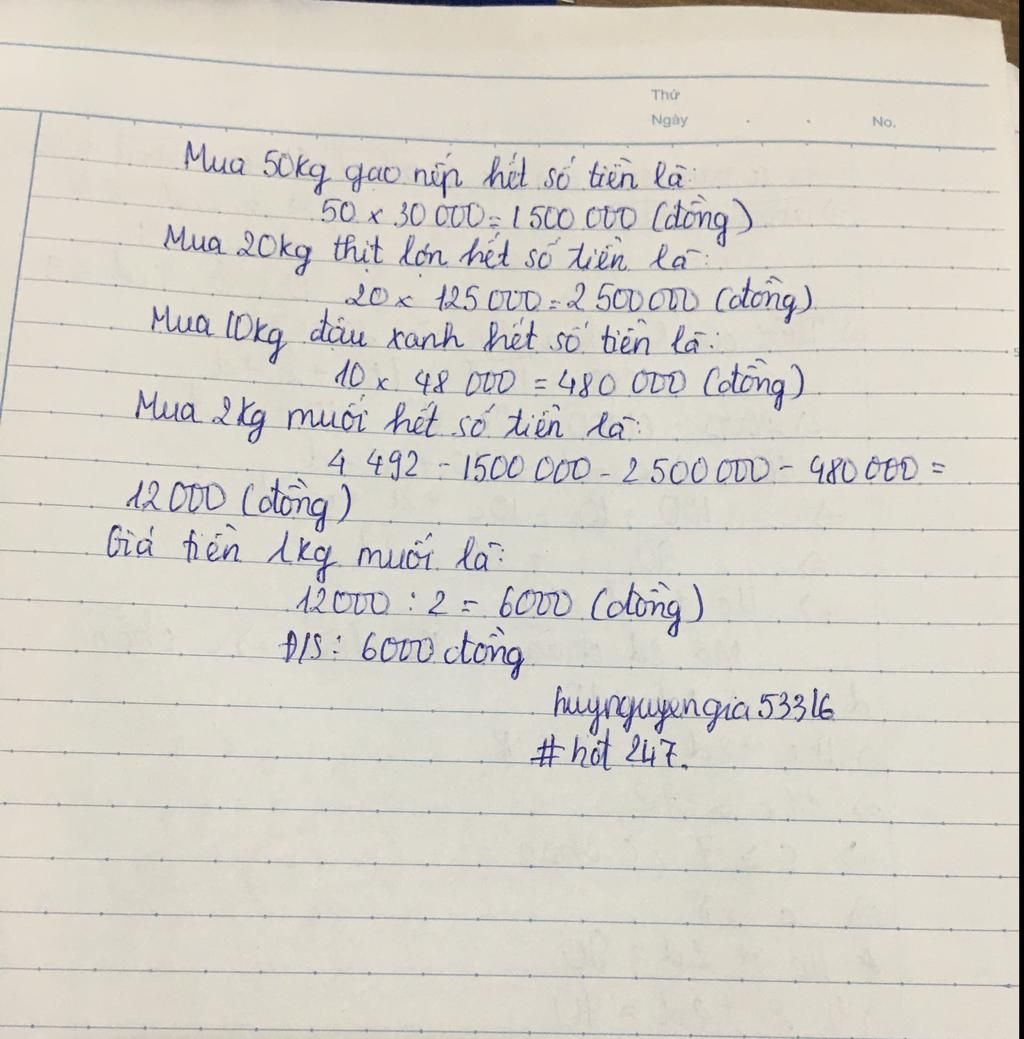 Thứ
Ngày . . No.
Mua 50kg gạo nếp hết số tiền là:
50 x 30 000 = 1 500 000 (đồng)
Mua 20kg thịt lợn hết số tiền là:
20 x 125 000 = 2 500 000 (đồng)
Mua 10kg đậu xanh hết số tiền là:
10 x 48 000 = 480 000 (đồng)
Mua 2kg muối hết số tiền là:
4 492 - 1500 000 - 2 500 000 - 480 000 =
12 000 (đồng)
Giá tiền 1kg muối là:
12000 : 2 = 6000 (đồng)
Đ/S: 6000 đồng
huynguyengia53316
#hot 247.